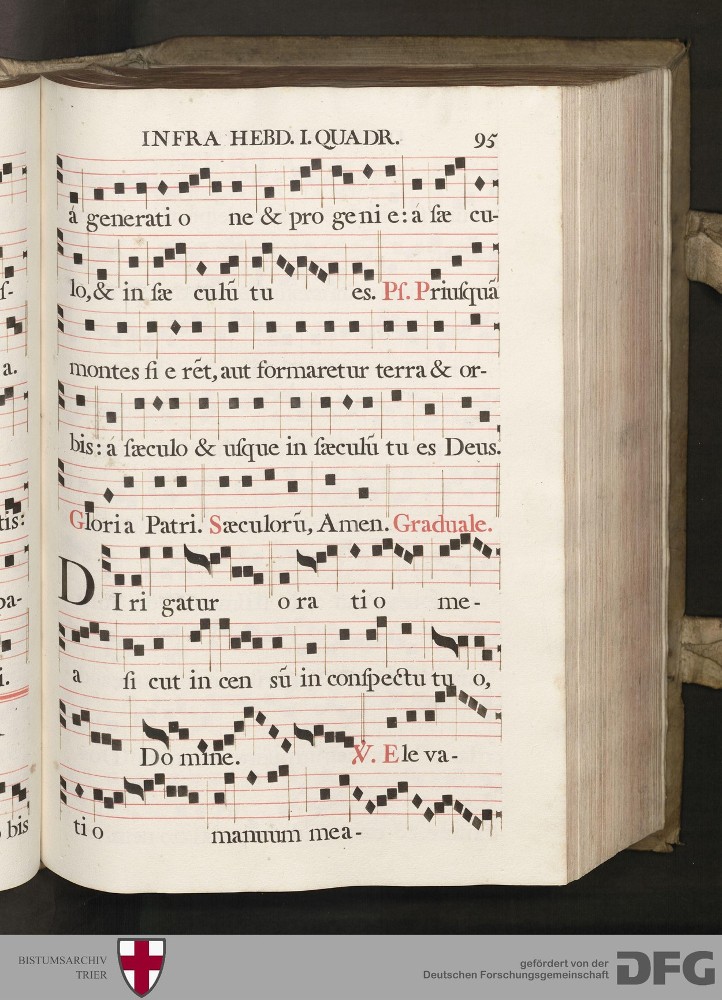 INFRA HEBD. I. QUADR. 95
á generati o ne & pro ge ni e: á sæ cu-
lo, & in sæ culũ tu es. Ps. Priusquã
montes fi e rẽt, aut formaretur terra & or-
bis: á sæculo & usque in sæculũ tu es Deus.
Gloria Patri. Sæculorũ, Amen. Graduale.
DI ri gatur o ra ti o me-
a si cut in cen sũ in conspectu tu o,
Do mine. V. E le va-
ti o manuum mea-
a.
tis:
pa-
i.
bis
BISTUMSARCHIV
TRIER
gefördert von der
Deutschen Forschungsgemeinschaft
DFG